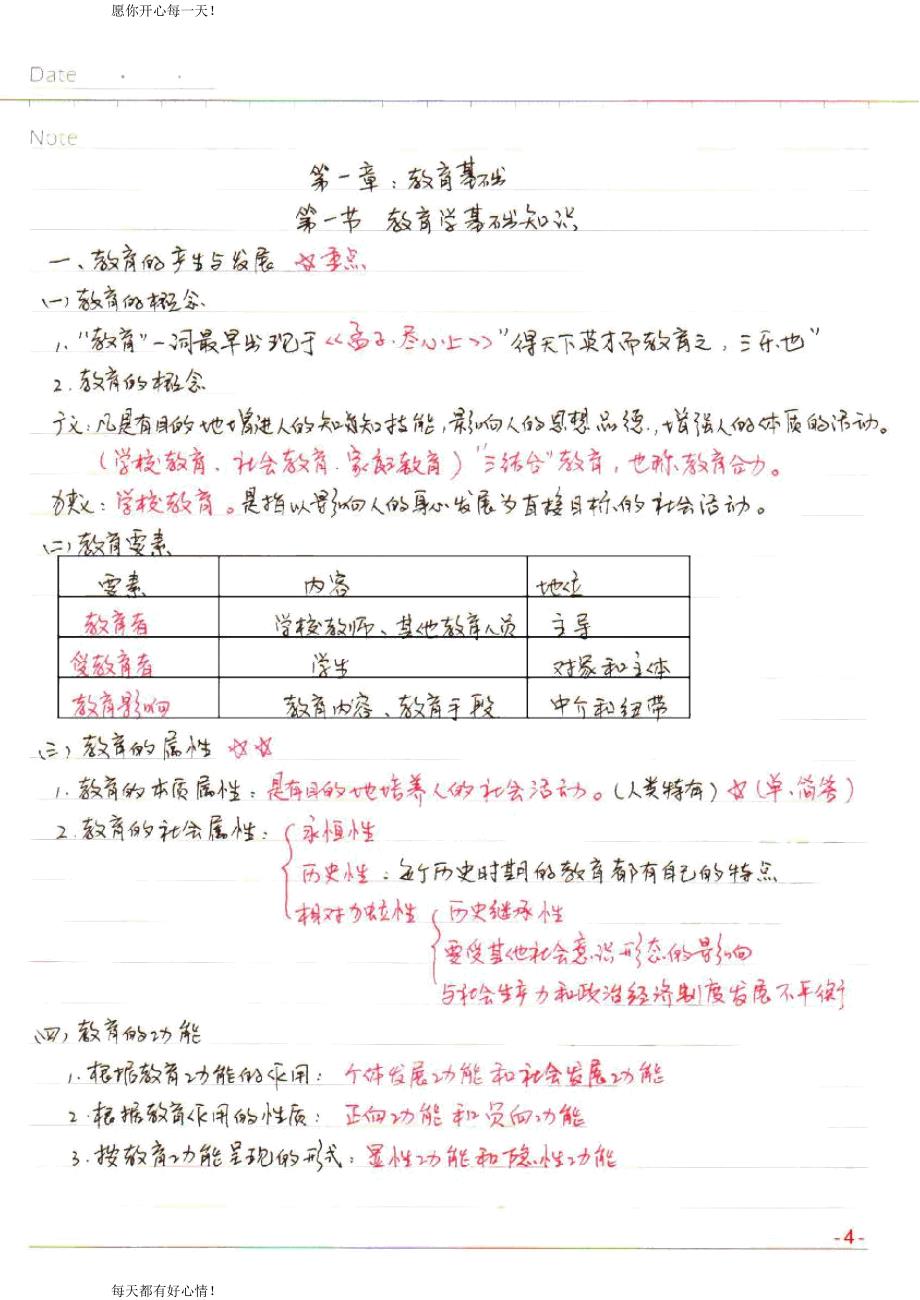 愿你开心每一天!
Date
Note
第一章：教育基础
第一节 教育学基础知识
一、教育的产生与发展 ☆重点
(一)教育的概念
1."教育"一词最早出现于《孟子·尽心上》"得天下英才而教育之，三乐也"
2.教育的概念
广义：凡是有目的地增进人的知识和技能，影响人的思想品德，增强人的体质的活动。
(学校教育、社会教育、家庭教育)"三结合"教育，也称教育合力。
狭义：学校教育。是指以影响人的身心发展为直接目标的社会活动。
(二)教育要素
要素 内容 地位
教育者 学校教师、其他教育人员 主导
受教育者 学生 对象和主体
教育影响 教育内容、教育手段 中介和纽带
(三)教育的属性 ☆☆
1.教育的本质属性：是有目的地培养人的社会活动。(人类特有)☆(单、简答)
2.教育的社会属性：永恒性
历史性：每个历史时期的教育都有自己的特点
相对独立性 历史继承性
要受其他社会意识形态的影响
与社会生产力和政治经济制度发展不平衡
(四)教育的功能
1.根据教育功能的作用：个体发展功能和社会发展功能
2.根据教育作用的性质：正向功能和负向功能
3.按教育功能呈现的形式：显性功能和隐性功能
-4-
每天都有好心情!